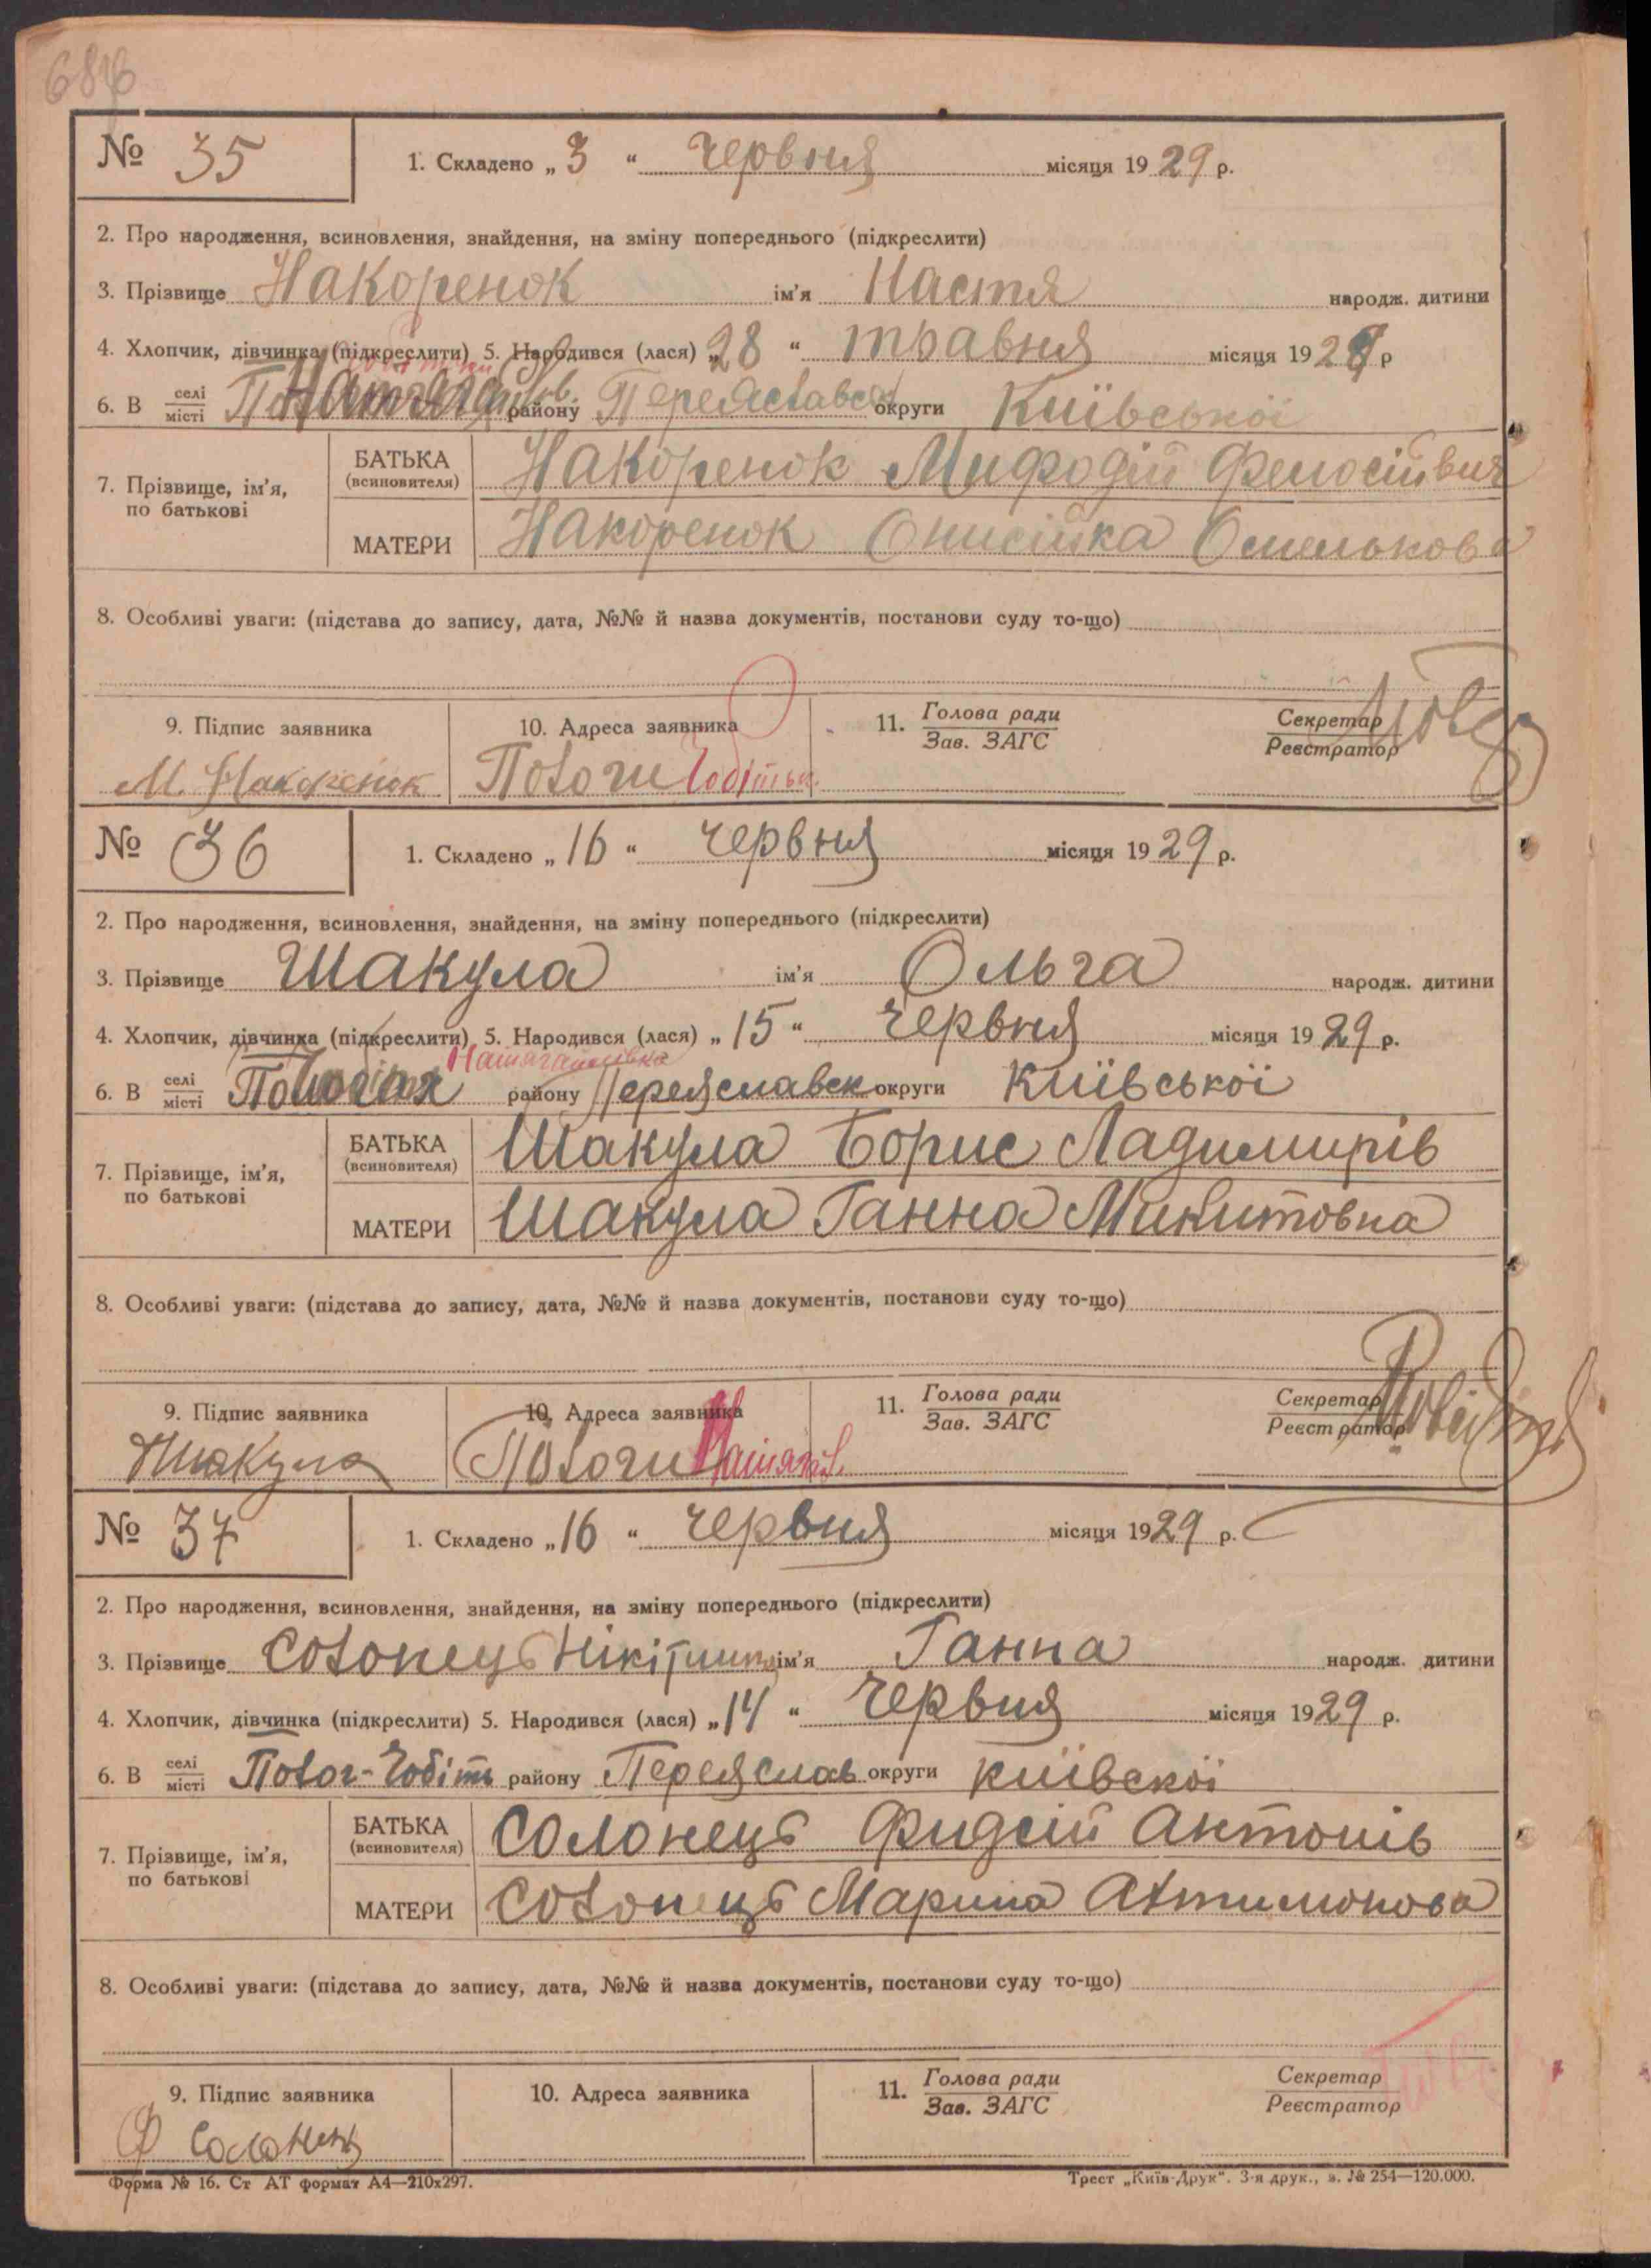 № 35
1. Складено „3“ червня місяця 1929 р.
2. Про народження, всиновлення, знайдення, на зміну попереднього (підкреслити)
3. Прізвище Накоренок ім'я Настя народж. дитини
4. Хлопчик, дівчинка (підкреслити) 5. Народився (лася) „28“ травня місяця 1929 р
6. В селі місті району Переяславськ округи Київської
7. Прізвище, ім'я, по батькові
БАТЬКА (всиновителя) Накоренок Мифодій
МАТЕРИ Накоренок Онисійка Омелькова
8. Особливі уваги: (підстава до запису, дата, №№ й назва документів, постанови суду то-що)
9. Підпис заявника
10. Адреса заявника
11. Голова ради Зав. ЗАГС
Секретар Реєстратор
М. Накоренок
Пологи Чобітьк
№ 36
1. Складено „16“ червня місяця 1929 р.
2. Про народження, всиновлення, знайдення, на зміну попереднього (підкреслити)
3. Прізвище Шакула ім'я Ольга народж. дитини
4. Хлопчик, дівчинка (підкреслити) 5. Народився (лася) „15“ червня місяця 1929 р.
6. В селі місті району Переяславск округи Київської
7. Прізвище, ім'я, по батькові
БАТЬКА (всиновителя) Шакула Борис Ладимирів
МАТЕРИ Шакула Ганна Микитовна
8. Особливі уваги: (підстава до запису, дата, №№ й назва документів, постанови суду то-що)
9. Підпис заявника
10. Адреса заявника
11. Голова ради Зав. ЗАГС
Секретар Реєстратор
Шакула
Пологи
№ 37
1. Складено „16“ червня місяця 1929 р.
2. Про народження, всиновлення, знайдення, на зміну попереднього (підкреслити)
3. Прізвище Солонець ім'я Ганна народж. дитини
4. Хлопчик, дівчинка (підкреслити) 5. Народився (лася) „14“ червня місяця 1929 р.
6. В селі місті Полог-Чобіть району Переяслав округи київскої
7. Прізвище, ім'я, по батькові
БАТЬКА (всиновителя) Солонець Фидсій Антонів
МАТЕРИ Солонець Марина Алтимонова
8. Особливі уваги: (підстава до запису, дата, №№ й назва документів, постанови суду то-що)
9. Підпис заявника
10. Адреса заявника
11. Голова ради Зав. ЗАГС
Секретар Реєстратор
Ф Солонец
Форма № 16. Ст АТ формат А4—210х297.
Трест „Київ-Друк“. 3-я друк., з. № 254—120.000.